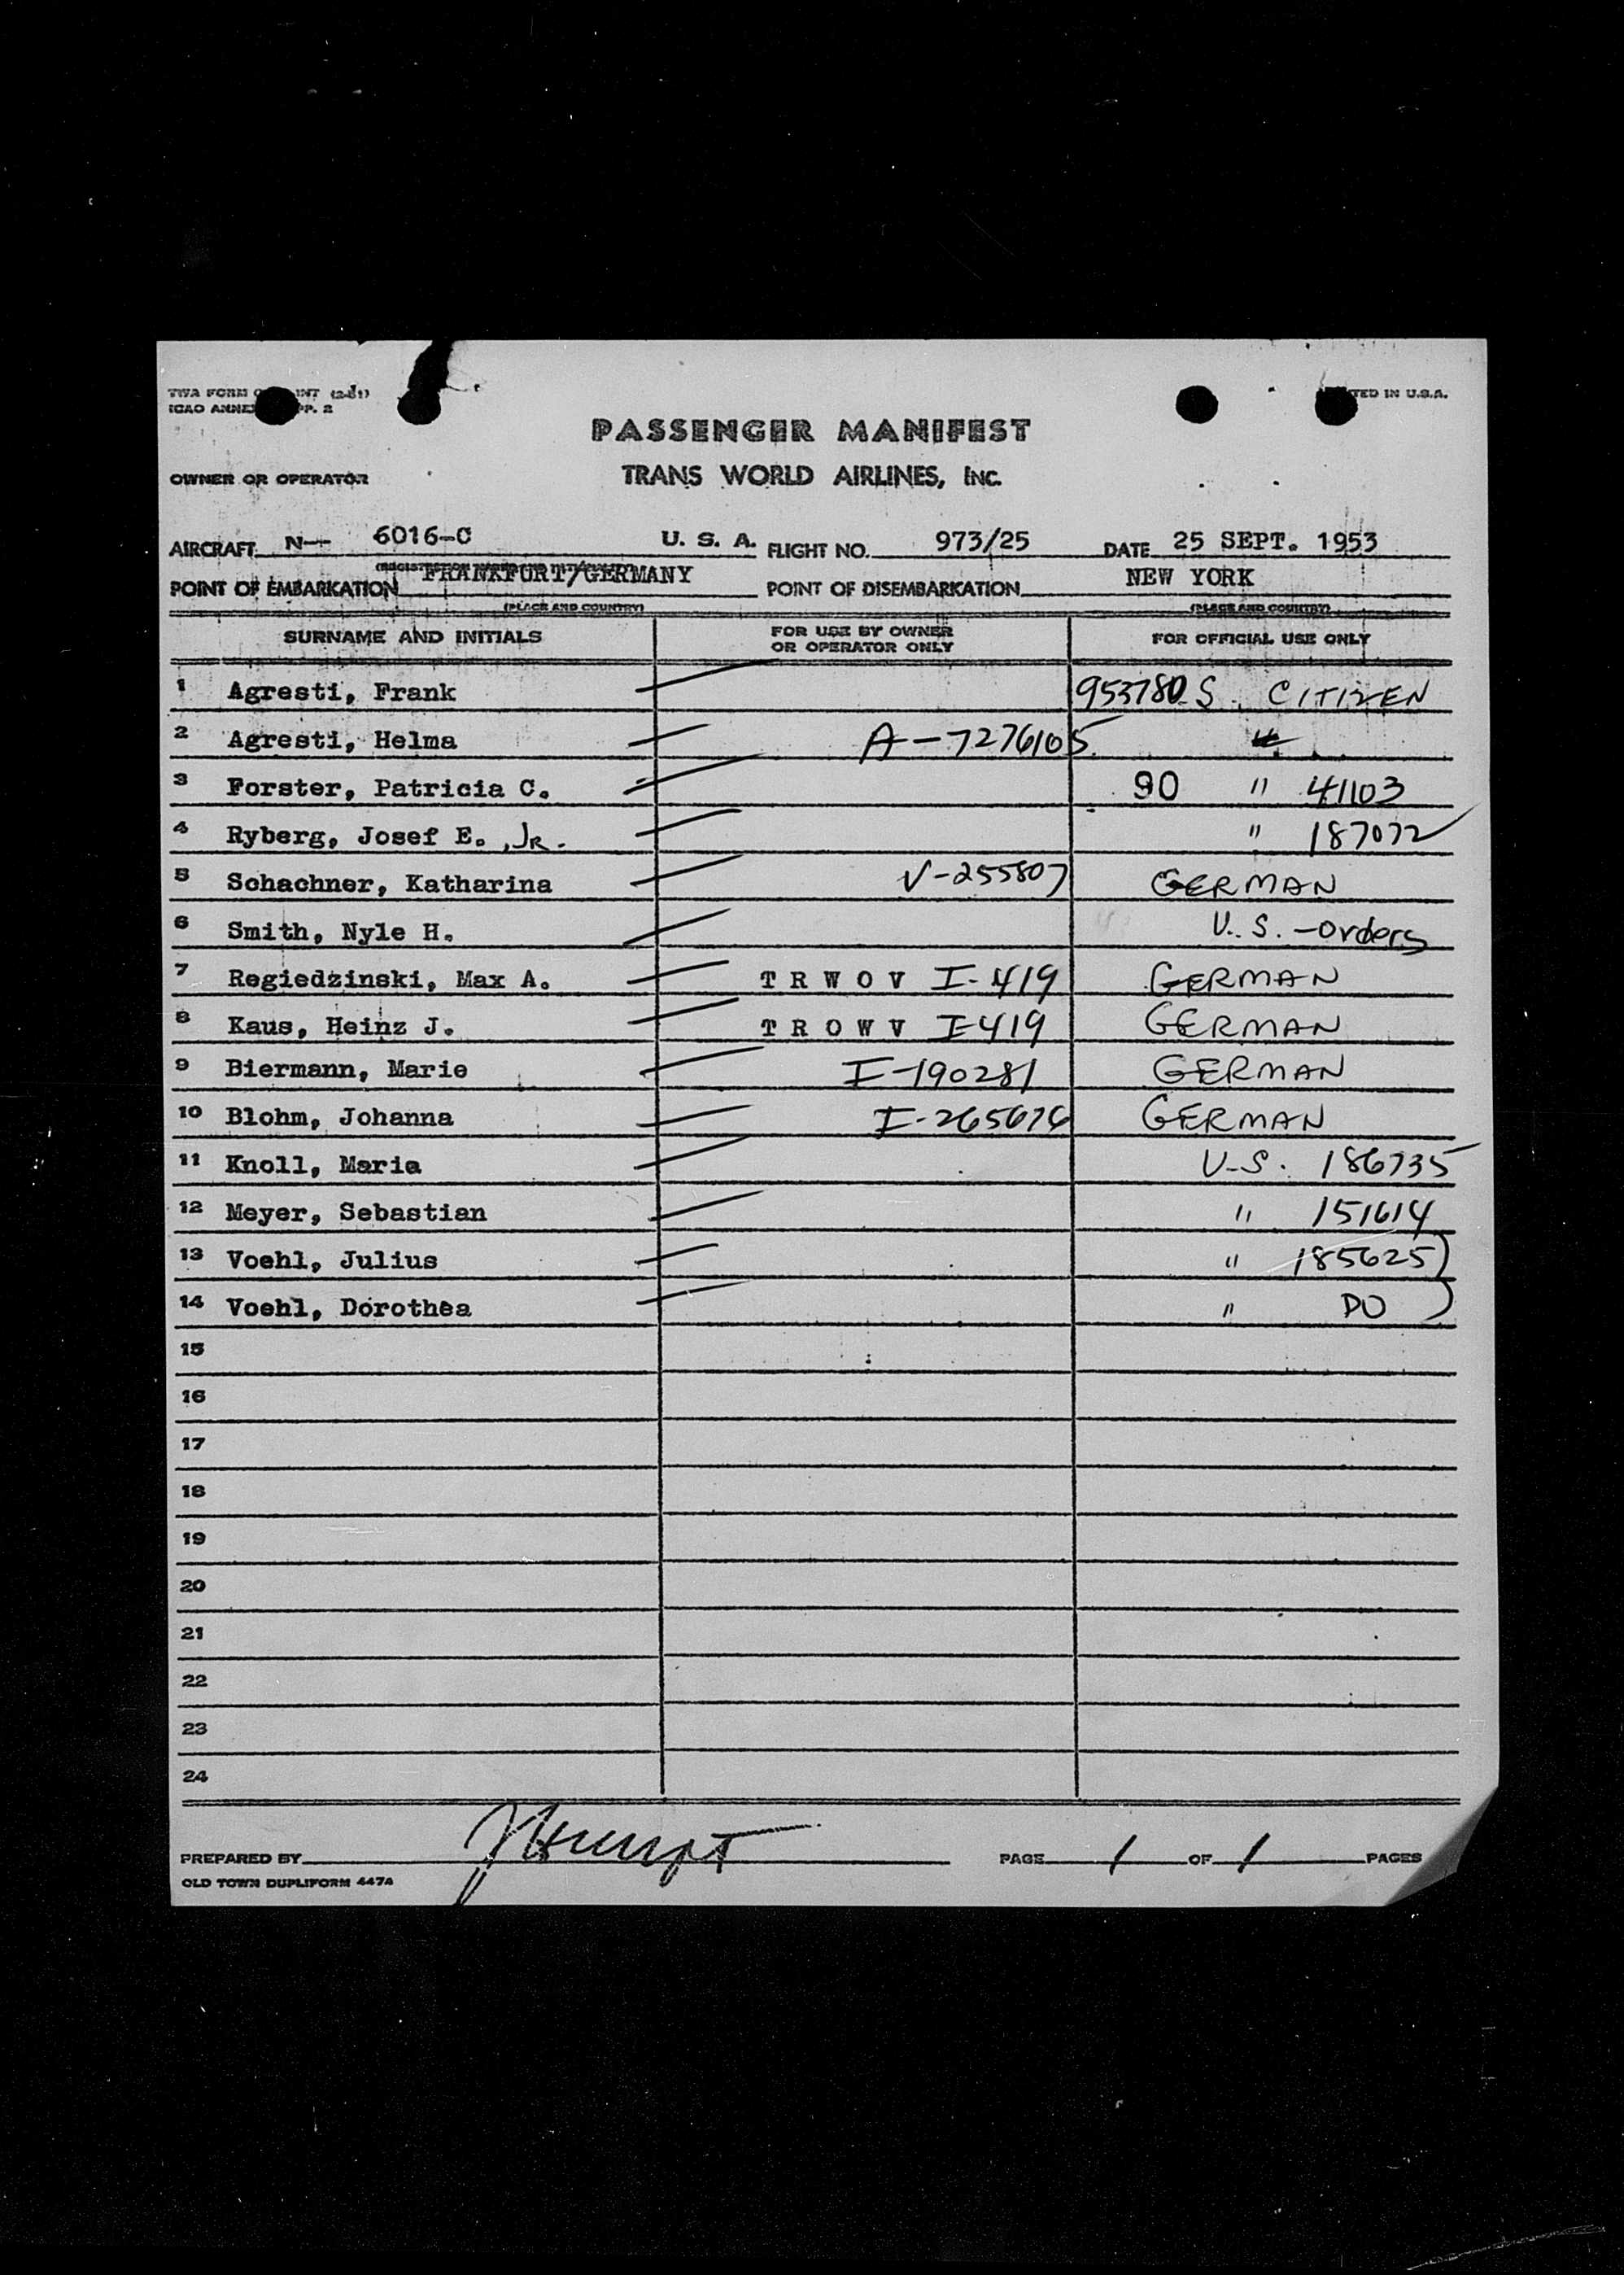 TWA FORM INT (2-51)
ICAO ANNEX PP. 2
TED IN U.S.A.
PASSENGER MANIFEST
OWNER OR OPERATOR TRANS WORLD AIRLINES, INC.
AIRCRAFT N— 6016-C U. S. A. FLIGHT NO. 973/25 DATE 25 SEPT. 1953
POINT OF EMBARKATION FRANKFURT/GERMANY POINT OF DISEMBARKATION NEW YORK
(PLACE AND COUNTRY) (PLACE AND COUNTRY)
SURNAME AND INITIALS FOR USE BY OWNER OR OPERATOR ONLY FOR OFFICIAL USE ONLY
1 Agresti, Frank 953780 S CITIZEN
2 Agresti, Helma A-7276105
3 Forster, Patricia C. 90 " 41103
4 Ryberg, Josef E. , JR. " 187072
5 Schachner, Katharina V-255807 GERMAN
6 Smith, Nyle H. U.S. - Orders
7 Regiedzinski, Max A. T R W O V I-419 GERMAN
8 Kaus, Heinz J. T R O W V I-419 GERMAN
9 Biermann, Marie I-190281 GERMAN
10 Blohm, Johanna I-265676 GERMAN
11 Knoll, Maria U-S. 186735
12 Meyer, Sebastian " 151614
13 Voehl, Julius " 185625)
14 Voehl, Dorothea " DO )
15
16
17
18
19
20
21
22
23
24
PREPARED BY PAGE 1 OF 1 PAGES
OLD TOWN DUPLIFORM 447A